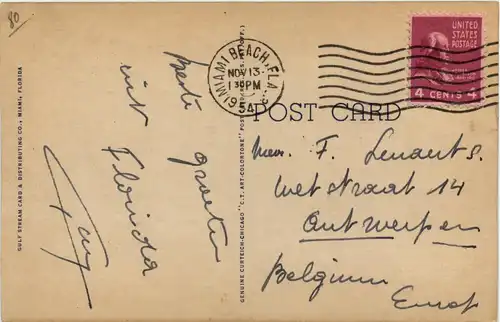 80
GULF STREAM CARD & DISTRIBUTING CO., MIAMI, FLORIDA
Beste groeten
uit
Florida
GENUINE CURTEICH-CHICAGO "C.T. ART-COLORTONE" POST
MIAMI BEACH, FLA.
NOV 13
1 30 PM
54
UNITED
STATES
POSTAGE
4 CENTS 4
POST CARD
F. Lenaerts.
Wetstraat 14
Antwerpen
Belgium
Europ